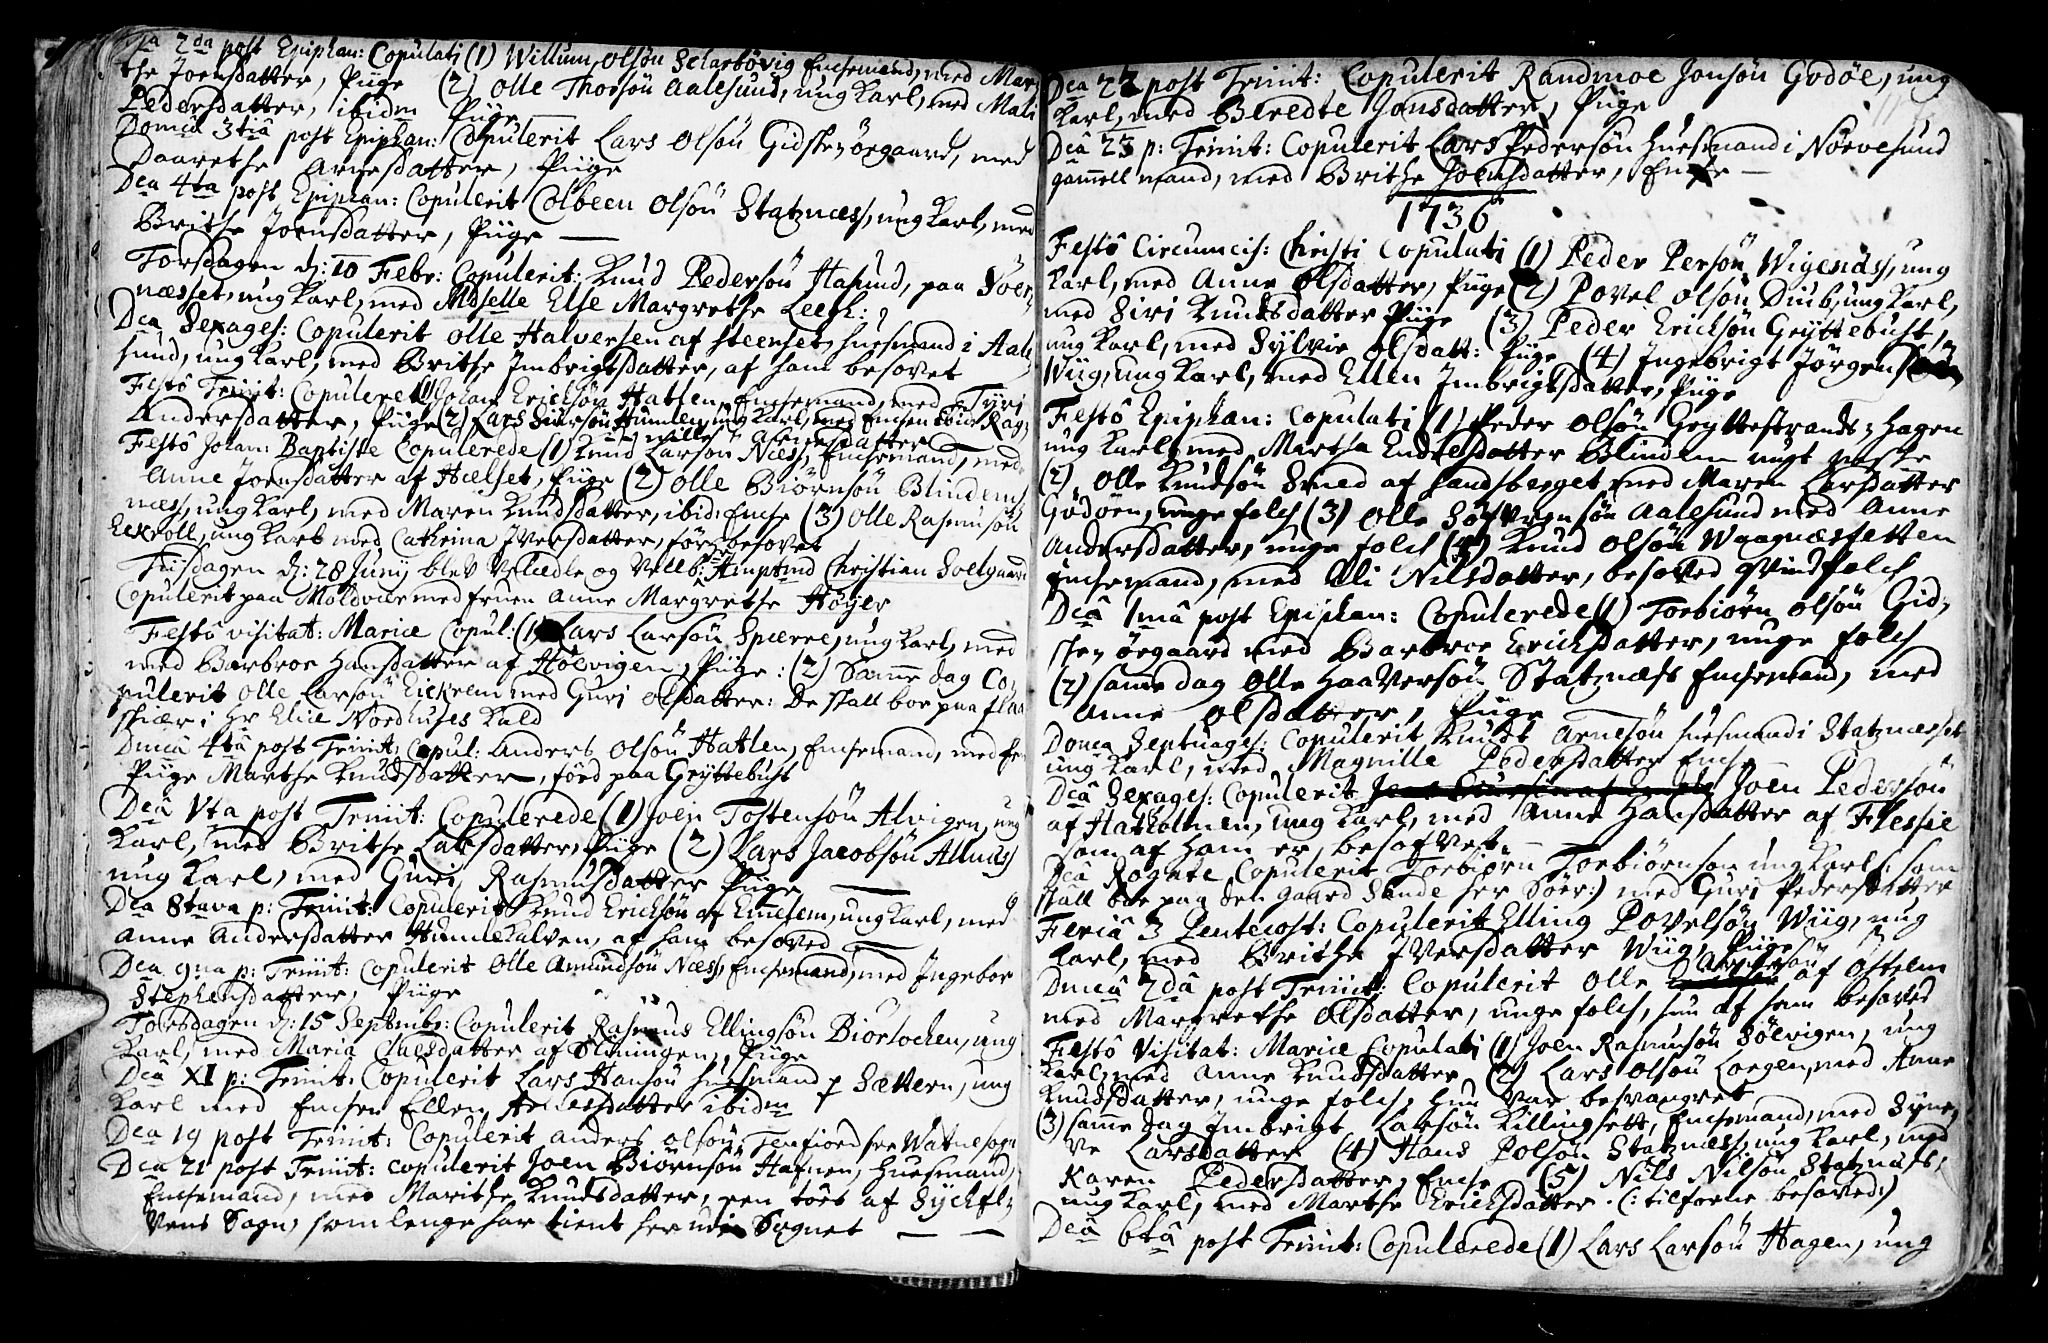 2da post Epiphan: Copulati (1) Willum Olsön Sclarbövig Enchemand, med Mar
the Joensdatter, Piige (2) Olle Thorsön Aalesund, ung Karl, med Mali
Pedersdatter, ibidm Piige
Domca 3tia post Epiphan: Copulerit Lars Olsön Gidsche, öegaard, med
Daarethe Arnesdatter, Piige
Dca 4ta post Epiphan: Copulerit Colbeen Olsön Statznæss, ung Karl, med
Brithe Joensdatter, Piige
Torsdagen d: 10 Febr: Copulerit: Knud Pedersön Hasund, paa
næsset, ung Karl, med Mdselle Else Margrethe Leech:
Dca Sexages: Copulerit Olle Halversen af Steenset, huesmand i Aale
sund, ung Karl, med Brithe Imbrigtsdatter, af ham besovet
Festô Trinit: Copulerede (1) Johan Ericksön Hatlen, Enchemand, med Tyri
Andersdatter, Piige (2) Lars Siursön Humlen, ung Karl, med Enchen Rag
nille Arnesdatter
Festô Johan: Baptistæ Copulerede (1) Knud Larsön Næss, Enchemand, med
Anne Joensdatter af Hælset, Piige (2) Olle Biörnsön Blindems
næss, ung Karl, med Maren Knudsdatter, ibid: Enche (3) Olle Rasmusön
Eckroll, ung Karl med Cathrina Iversdatter, för besovet
Tiisdagen d: 28 Junij blev Velædle og Velb: Hr Amptmd Christian Soelgaard
Copulerit paa Moldvær med Fruen Anne Margrethe Höyer
Festô visitat: Mariæ Copul: (1) Lars Larsön Spærre, ung Karl, med
med Barbroe Hansdatter af Hölvigen, Piige: (2) Samme dag Co
pulerit Olle Larsön Eickrem med Guri Olsdatter: De skall boe paa Flaa
schiær i Hr Elie Nordhuses Kald
Dmca 4ta post Trinit: Copul: Anders Olsön Hatlen, Enchemand, med en
Piige Marthe Knudsdatter, föed paa Gryttebust
Dca Vta post Trinit: Copulerede (1) Joen Tostensön Alvigen, ung
Karl, med Brithe Larsdatter, Piige (2) Lars Jacobsön Alnæs
ung Karl, med Guri Rasmusdatter Piige
Dca 8tava p: Trinit: Copulerit Knud Ericksön af Emblem, ung Karl, med
Anne Andersdatter Humlekalven, af ham besoved
Dca 9na p: Trinit: Copulerit Olle Amundsön Næss, Enchemand, med Ingebor
Stephensdatter, Piige
Torsdagen d: 15 Septmbr: Copulerit Rasmus Ellingsön Biörlochen, ung
Karl, med Maria Clasdatter af Slininggen, Piige
Dca XI p: Trinit: Copulerit Lars Hansön huesmand p Sættern, ung
Karl med Enchen Ellen Arnesdatter ibidm
Dca 19 post Trinit: Copulerit Anders Olsön Tenfiord fra Watne sogn
Dca 21 post Trinit: copulerit Joen Biörnsön Hafnen, Huesmand,
Enchemand, med Marithe Knudsdatter, een töes af Sÿckel
vens Sogn, som lenge har tient her udi Sognet
Dca 22 post Trinit: Copulerit Randmoe Jonsön Godöe, ung
Karl, med Beredte Jonsdatter, Piige
Dca 23 p: Trinit: Copulerit Lars Pedersön huesmand i Nörvesund
gammell mand, med Brithe Joensdatter, Enche
1736
Festô Circumcis: Christi Copulati (1) Peder Persön Wigenæs, ung
Karl, med Anne Olsdatter, Piige (2) Povel Olsön Diub, ung Karl,
med Siri Knudsdatter Piige (3) Peder Ericksön Gryttebust,
ung Karl, med Sylvie Olsdatt: Piige (4) Ingebrigt Jörgensön
Wiig, ung Karl, med Ellen Imbrigtsdatter, Piige
Festô Epiphan: Copulati (1) Peder Olsön Gryttestrands Hagen
ung Karl, med Martha Endresdatter Blindem ungt
(2) Olle Knudsön Smed af Landsberget med Maren Larsdatter
Gödöen, unge folch (3) Olle Söfvrensön Aalesund med Anne
Andersdatter, unge folch (4) Knud Olsön Waagnæssetten
Enchemand, med Eli Nilsdatter, besoved Qvindfolch
Dca 1ma post Epiphan: Copulerede (1) Torbiörn Olsön Gid
sche, öegaard med Barbroe Ericksdatter, unge folch
(2) samme dag Olle Haaversön Statznæss Enchemand, med
Anne Olsdatter, Piige
Domca Septuages: Copulerit Knudt Arnesön huesmand i Statznæsset
ung Karl, med Magnille Pedersdatter Enche
Dca Sexages: Copulerit Joen Pedersön
af Hatholmen, ung Karl, med Anne Hansdatter af Flessie
som af ham er besofvet.
Dca Rogate Copulerit Torbiörn Torbiörnsön ung Karl (: som
skall boe paa den gaard Sande her Söer:) med Guri Pedersdatter
Feria 3 Pentecost: Copulerit Elling Povelsön Wiig, ung
Karl, med Brithe Iversdatter Wiig, Piige
Dmca 2da post Trinit: Copulerit Olle Arnesön af Östrem
med Margrethe Olsdatter, unge folch, hun af ham besoved
Festô Visitat: Mariæ Copulati (1) Joen Rasmusön Sölvigen, ung
Karl, med Anne Knudsdatter (2) Lars Olsön Longen, med Anne
Knudsdatter, unge folch, hun var besvangret
(3) samme dag Imbrigt Larsön Killingsett, Enchemand, med Syne
ve Larsdatter (4) Hans Polsön Statznæss, ung Karl, med
Karen Pedersdatter, Enche (5) Nils Nilsön Statznæss,
ung Karl, med Marthe Ericksdatter (: tilforne besoved:)
Dca 6ta post Trinit: Copulerede (1) Lars Larsön Hagen, ung